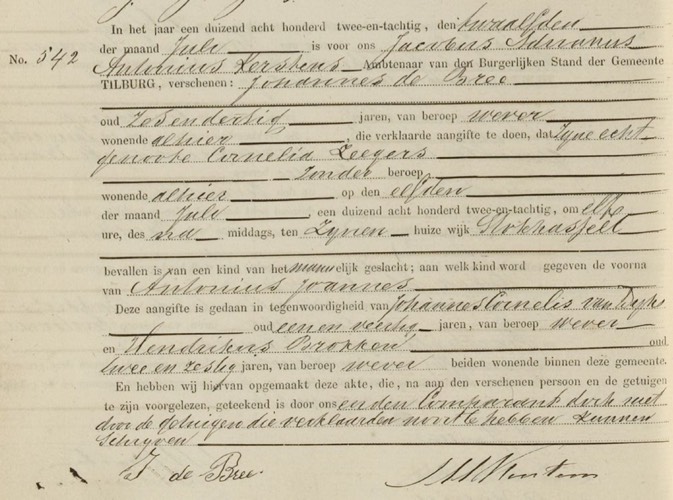 In het jaar een duizend acht honderd twee-en-tachtig, den twaalfden
der maand Juli is voor ons Jacobus Adrianus
No. 542
Antonius Kerstens Ambtenaar van den Burgerlijken Stand der Gemeente
TILBURG, verschenen: Johannes de Bree
oud zesendertig jaren, van beroep wever
wonende alhier, die verklaarde aangifte te doen, dat Zijne echt-
genoote Cornelia Zeegers
zonder beroep
wonende alhier op den elfden
der maand Juli een duizend acht honderd twee-en-tachtig, om elf
ure, des na middags, ten Zynen huize wijk Stokhasselt
bevallen is van een kind van het mannelijk geslacht; aan welk kind word gegeven de voorna
van Antonius Joannes
Deze aangifte is gedaan in tegenwoordigheid van Johannes Cornelis van Dijk
oud eenen veertig jaren, van beroep wever
en Hendrikus Brokken oud
twee en zestig jaren, van beroep wever beiden wonende binnen deze gemeente.
En hebben wij hiervan opgemaakt deze akte, die, na aan den verschenen persoon en de getuigen
te zijn voorgelezen, geteekend is door ons en den Comparant doch niet
door de getuigen die verklaarden nooit te hebben kunnen
schrijven
J de Bree.